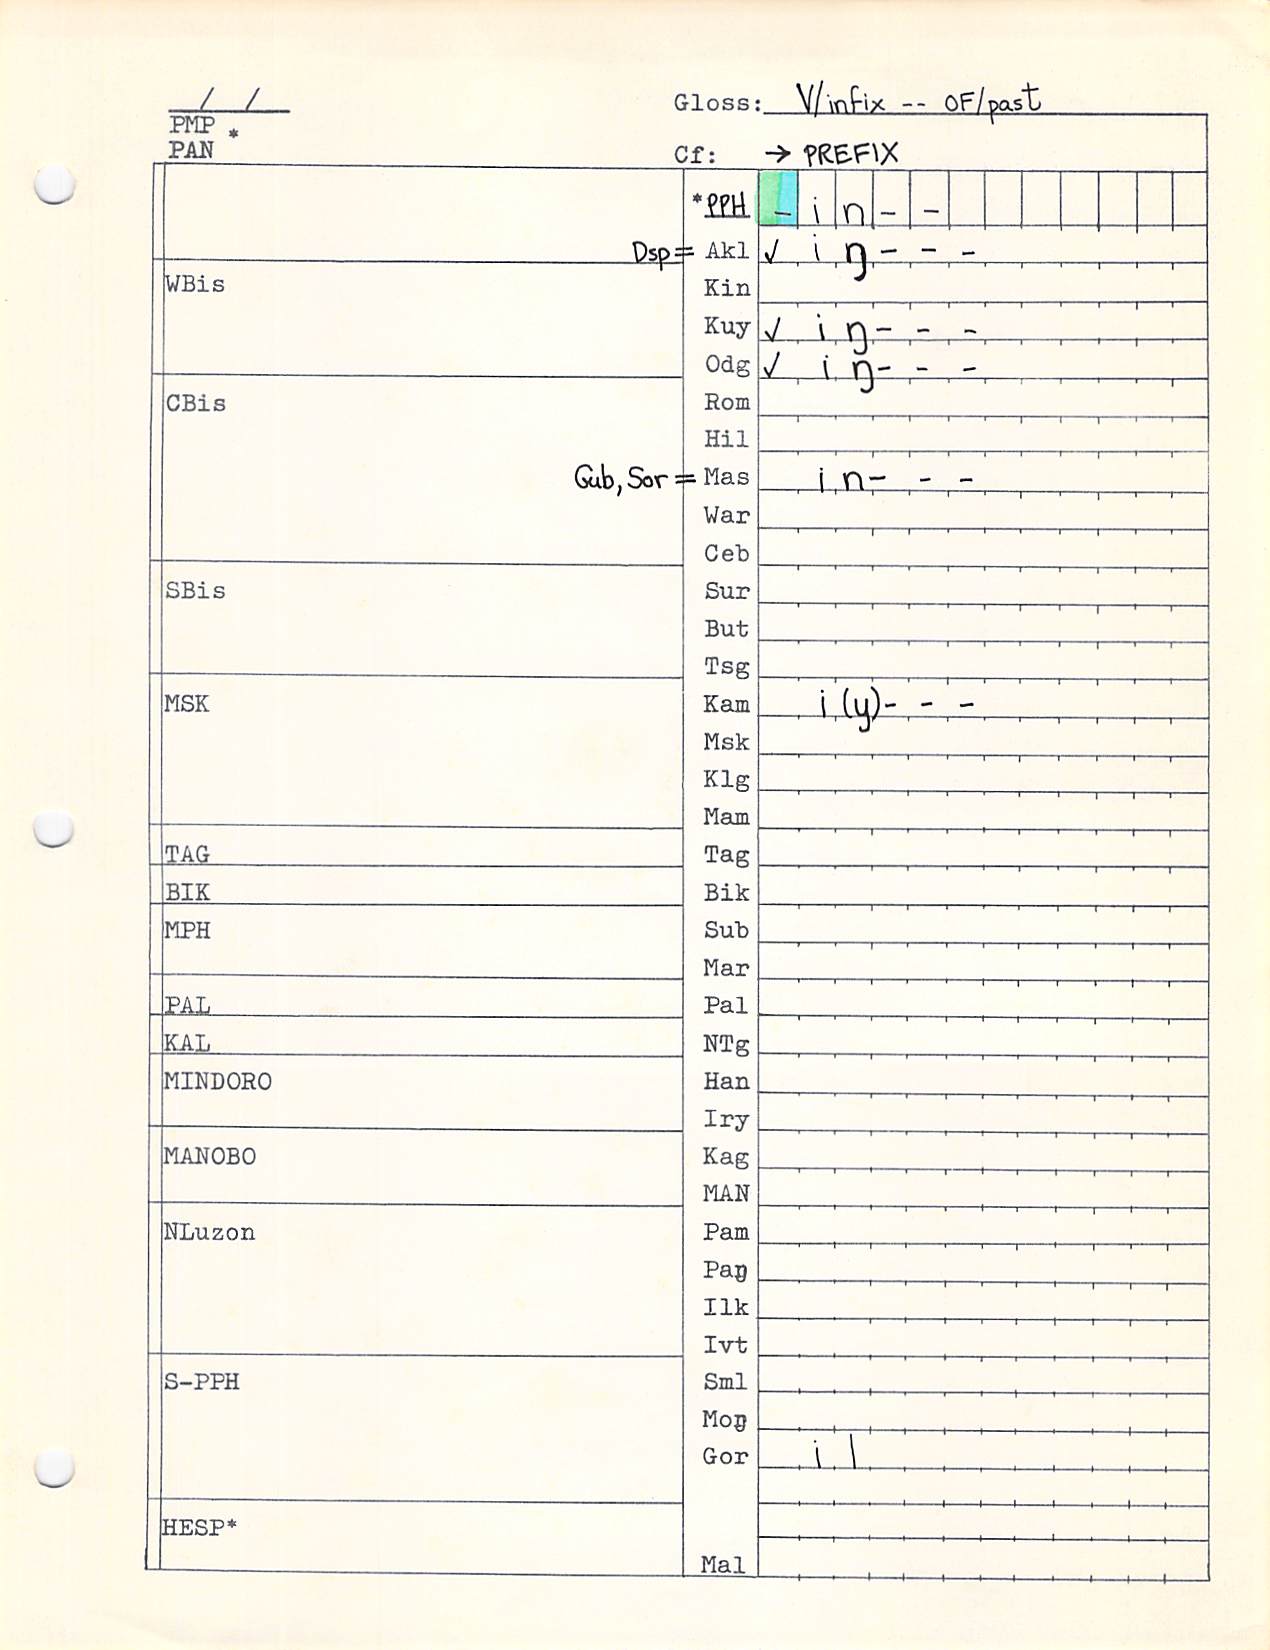 / /
PMP
PAN *
Gloss: V/infix -- OF/past
Cf: → PREFIX
*PPH - i n - -
Dsp = Akl ✓ i ŋ - - -
WBis
Kin
Kuy ✓ i ŋ - - -
Odg ✓ i ŋ - - -
CBis
Rom
Hil
Gub, Sor = Mas i n - - -
War
Ceb
SBis
Sur
But
Tsg
MSK
Kam i (y) - - -
Msk
Klg
Mam
TAG
Tag
BIK
Bik
MPH
Sub
Mar
PAL
Pal
KAL
NTg
MINDORO
Han
Iry
MANOBO
Kag
MAN
NLuzon
Pam
Paŋ
Ilk
Ivt
S-PPH
Sml
Moŋ
Gor i l
HESP*
Mal